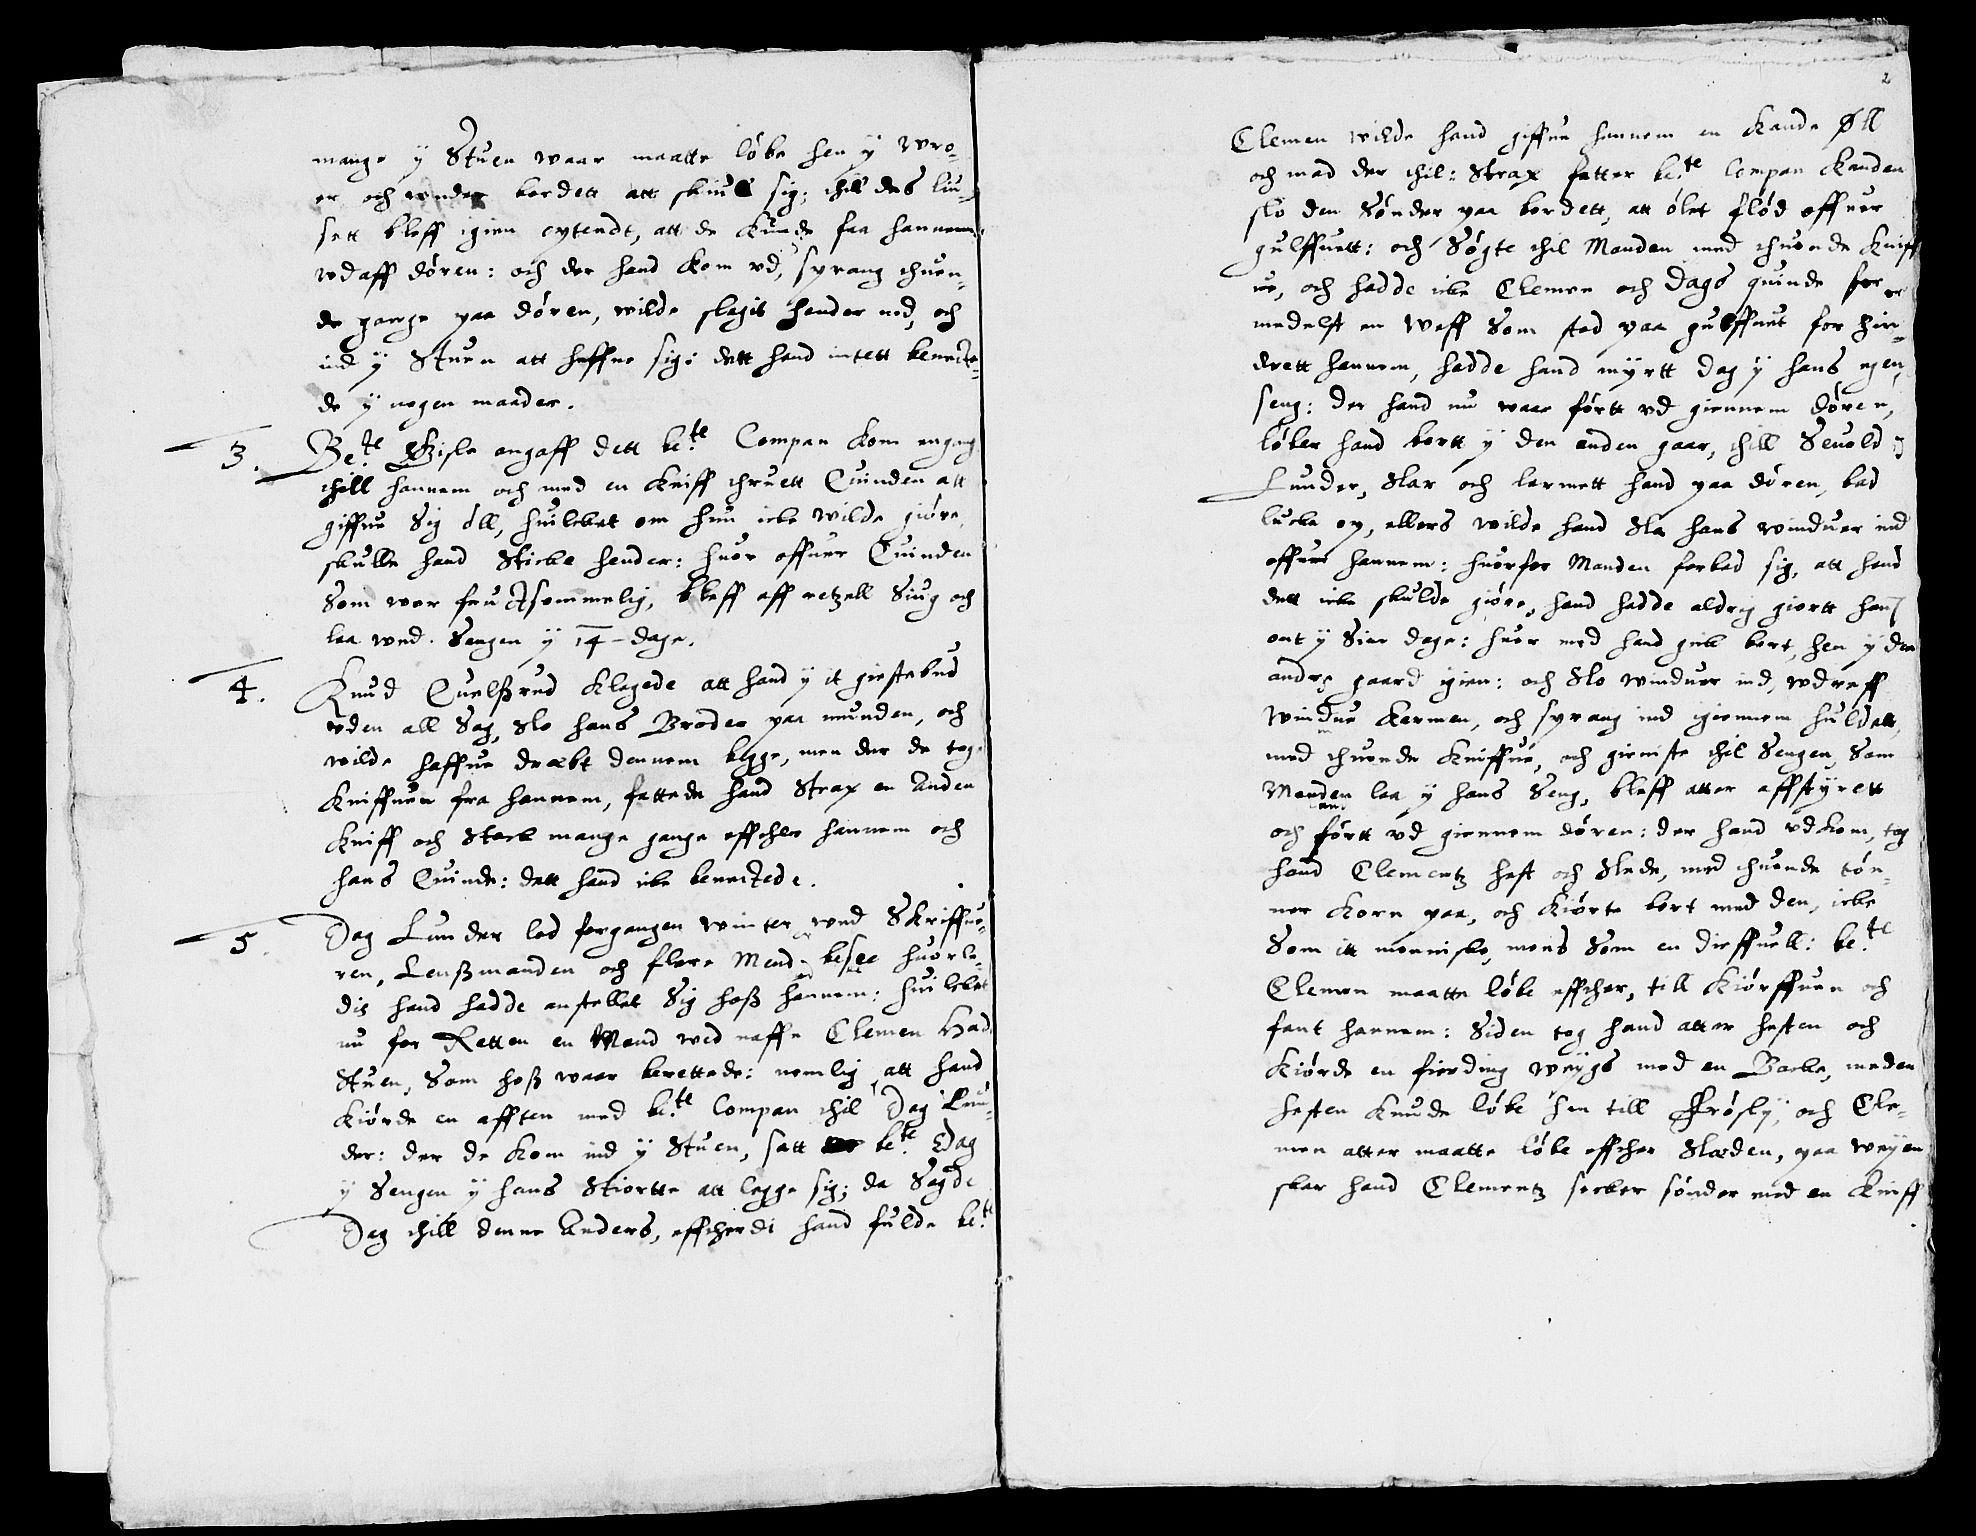 mange y Stuen waar maatte løbe hen y wro-
er och wnder bordett att skiule sig; thil des liu-
sett bleff igien optendt, att de kunde faa hannem
wdaff døren: och der hand kom vd, sprang thuen-
de gange paa døren, wilde slagit hender ned, och
ind y Stuen att heffne sig: dett hand intett beneckte-
de y nogen maader.
3. Be:te Gisle angaff dett be:te Compan kom engang
thill hannem och med en kniff thruett Quinden att
giffue Sig øll, huilcket om hun icke wilde giøre,
skulle hand Sticke hender: huor offuer Quinden
Som wor fructsommelig, bleff aff retzell Siug och
laa wed Sengen y 14 dage.
4. Knud Quelßrud klagede att hand y it giestebud
vden all Sag, Slo hans Broder paa munden, och
wilde haffue dræbt dennem begge, men der de tog
kniffuen fra hannem, fattede hand Strax en Anden
kniff och Stack mange gange effther hannem och
hans Quinde: dett hand icke benectede.
5. Dag Lunder lod forgangen winter wed Skriffue-
ren, Lenßmanden och flere Mend besee huorle-
dis hand hadde anstellet Sig hoß hannem: huilcket
nu for Retten en Mand wed naffn Clemen Had
Stuen, Som hoß waar berettede: nemlig att hand
kiørde en afften med be:te Compan thil Dag Lun-
der: der de kom ind y Stuen, satt be:te Dag
y Sengen y hans Skiortte att legge sig; da Sagde
Dag thill denne Anders, efftherdi hand fulde be:te
2
Clemen wilde hand giffue hannem en kande Øll
och mad der thil: Strax fatter be:te Compan Kanden
slo den Sønder paa bordett, att ølet flød offuer
gulffuett: och Søgte thil Manden med thuende kniff
ue, och hadde icke Clemen och Dags quinde for
medelst en Weff Som stod paa gulffuet for hin-
drett hannem, hadde hand myrtt Dag y hans egen
seng: der hand nu waar førtt vd giennem døren,
løber hand bortt y den anden gaar, thill Seuold
Lunder, Slar och larmett hand paa døren, bad
lucke op, ellers wilde hand Sla hans winduer ind
offuer hannem: huorfor Manden forbad sig, att hand
dett icke skulde giøre, hand hadde aldrig giortt han
ont y Sine dage: huor med hand gick bort, hen y den
andre gaard igien: och Slo winduer ind, vdreff
windue karmen, och sprang ind igiennem huldett
med thuende kniffue, och gienste thil Sengen, Som
Manden laa y hans Seng, bleff atter affstyrett
och førtt vd giennem døren: der hand vdkom, tog
hand Clementz hest och Slede, med thuende tøn-
ner korn paa, och kiørte bort med den, icke
Som itt menniske, mens Som en dieffuell: be:te
Clemen maatte løbe effther, till kiørffuen och
fant hannem: Siden tog hand atter hesten och
kiørde en fierding weygs med en Backe, meden
hesten kunde løbe hen till Frøsly, och Cle-
men atter maatte løbe effther Slæden, paa weyen
skar hand Clementz secker sønder med en kniff